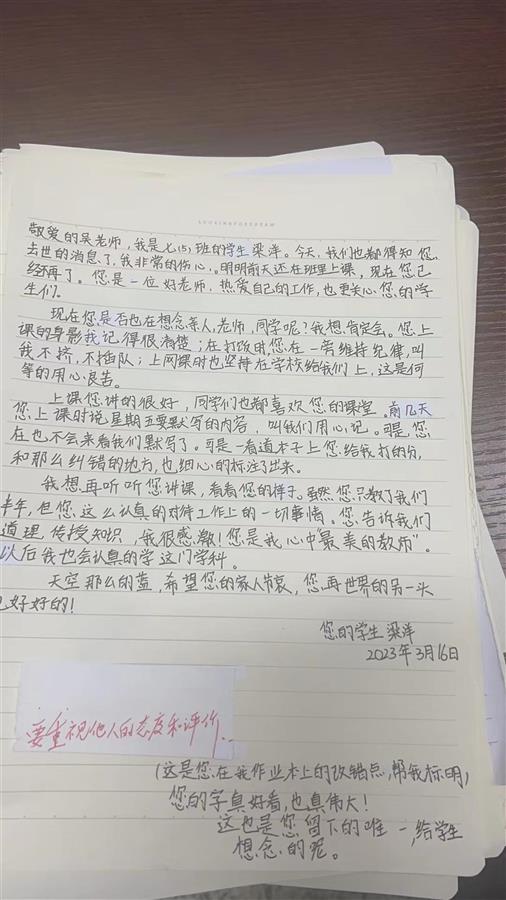 敬爱的吴老师，我是七（5）班的学生梁洋。今天，我们也都得知您
去世的消息了，我非常的伤心。明明前天还在班里上课，现在您已
经不再了。您是一位好老师，热爱自己的工作，也更关心您的学
生们。
现在您是否也在想念亲人，老师，同学呢？我想肯定会。您上
课的身影我记得很清楚；在打饭时，您在一旁维持纪律，叫
我不挤，不插队；上网课时也坚持在学校给我们上，这是何
等的用心良苦。
上课您讲的很好，同学们也都喜欢您的课堂。前几天
您上课时说星期五要默写的内容，叫我们用心记。可是您
在也不会来看我们默写了。可是一看道本子上您给我打的分，
和那么纠错的地方，也细心的标注了出来。
我想再听听您讲课，看看您的样子。虽然您只教了我们
半年，但您这么认真的对待工作上的一切事情。您告诉我们
道理，传授知识，我很感激！您是我心中“最美的教师”。
以后我也会认真的学这门学科。
天空那么的蓝，希望您的家人节哀，您再世界的另一头
也好好的！
您的学生 梁洋
2023年3月16日
要重视他人的态度和评价。
（这是您在我作业本上的改错点，帮我标明）
您的字真好看，也真伟大！
这也是您留下的唯一，给学生
想念的呢。